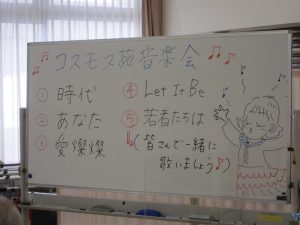 コスモス苑音楽会
① 時代
② あなた
③ 愛燦燦
④ Let It Be
⑤ 若者たちは
(皆さんで一緒に
歌いましょう♪)